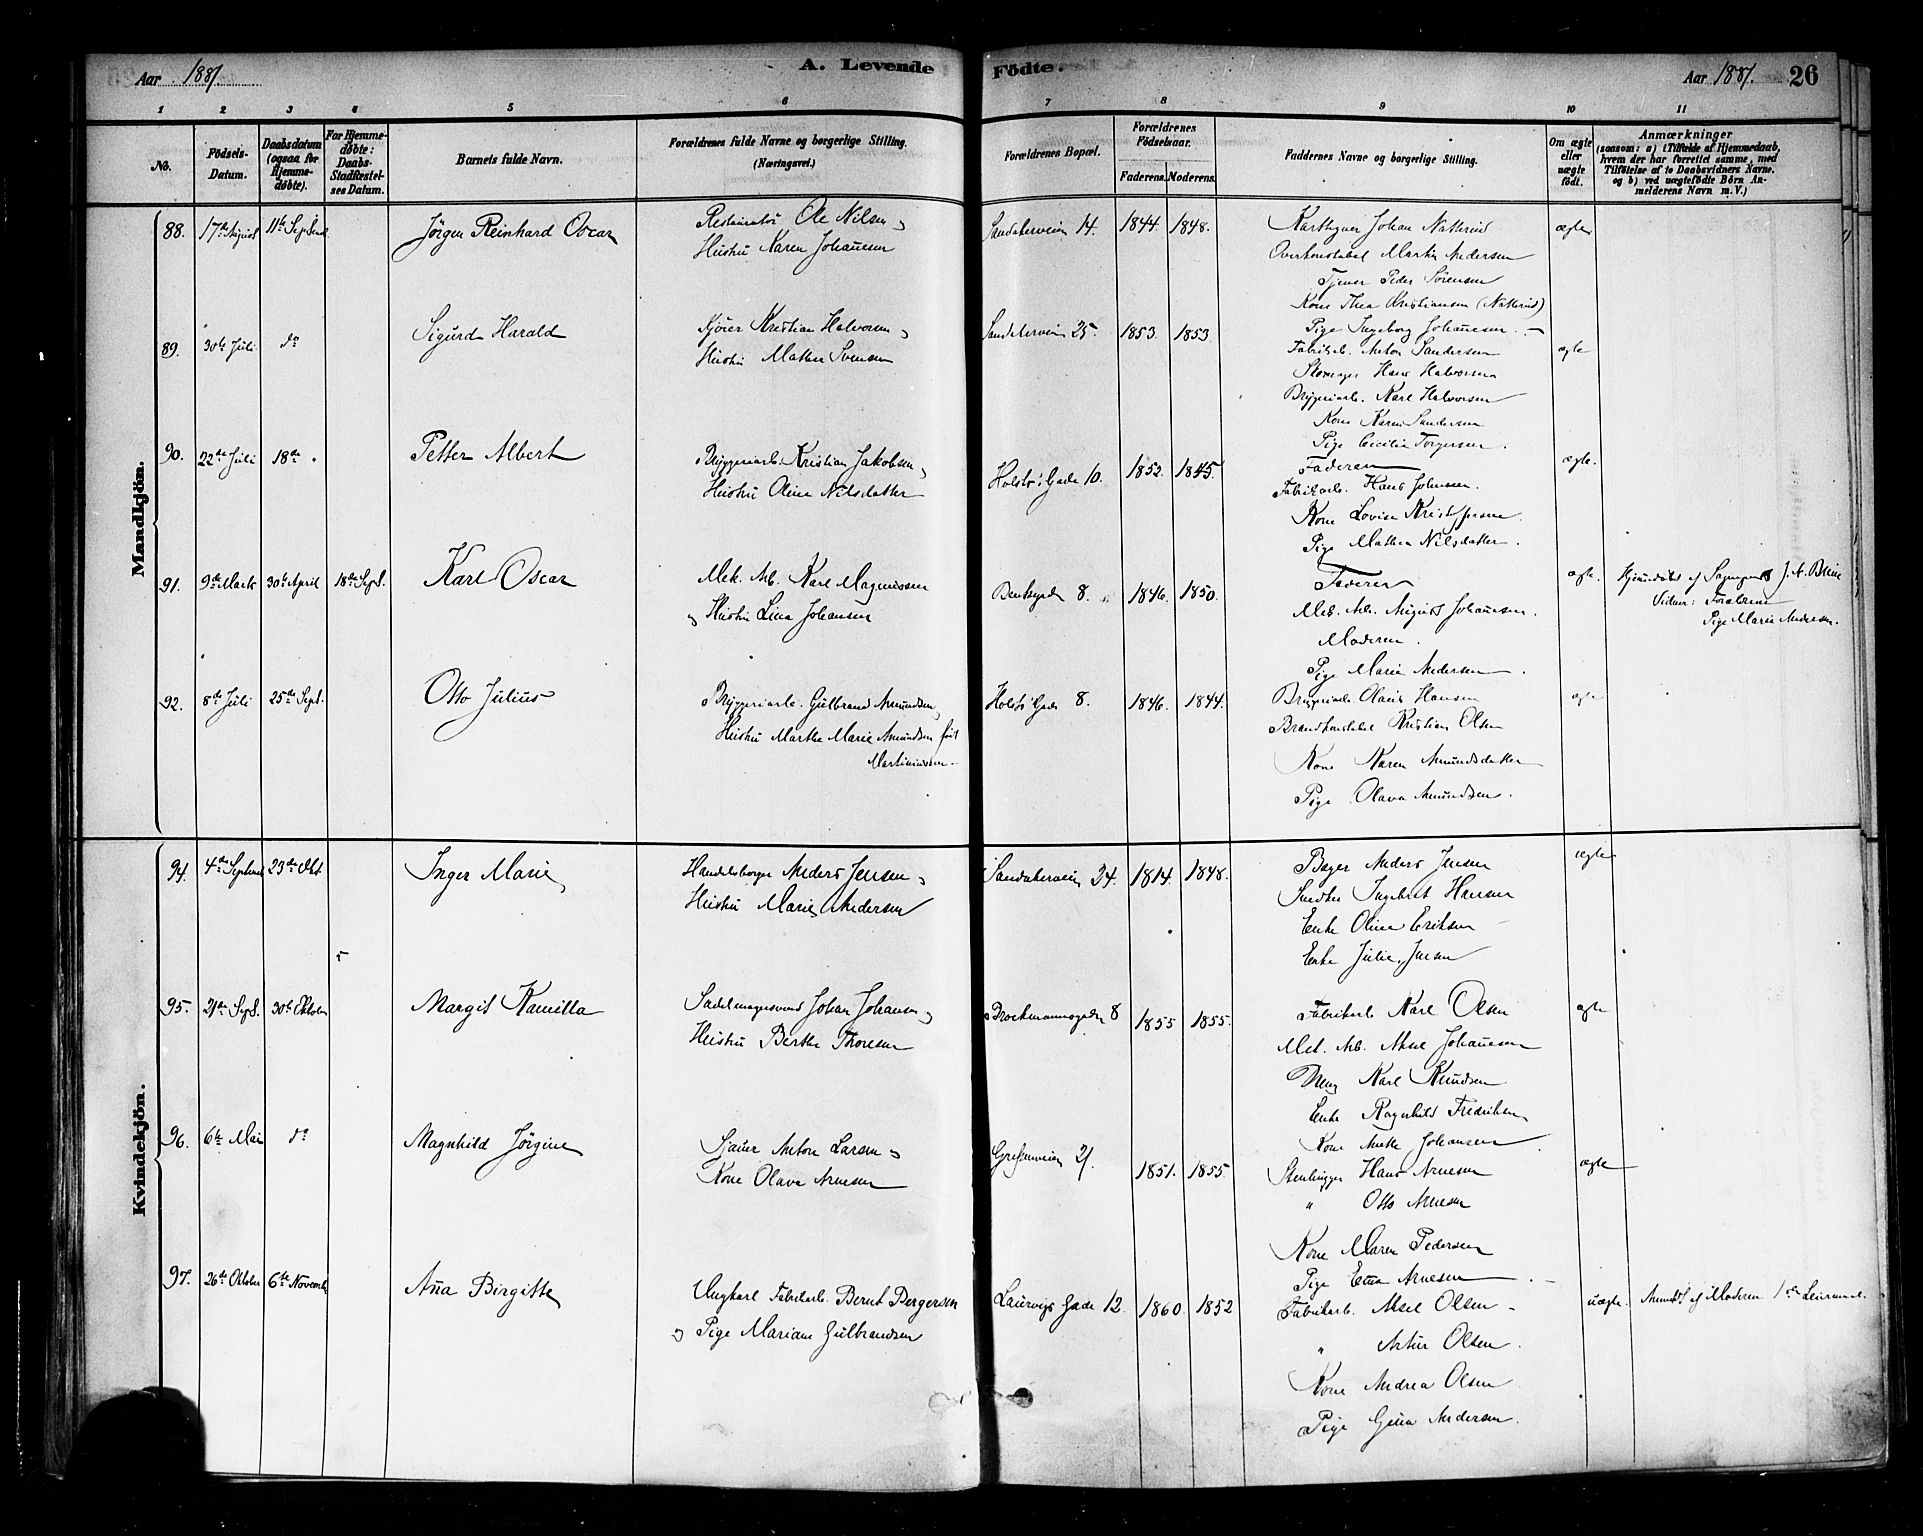 Aar 1881.
A. Levende Fødte.
Aar 1881. 26
1 2 3 4 5 6 7 8 9 10 11
No.
Fødsels-Datum.
Daabsdatum (ogsaa for Hjemmedøbte).
For Hjemmedøbte: Daabs-Stadfæstelses Datum.
Barnets fulde Navn.
Forældrenes fulde Navne og borgerlige Stilling. (Næringsvei.)
Forældrenes Bopæl.
Forældrenes Fødselsaar.
Faderens. Moderens.
Faddernes Navne og borgerlige Stilling.
Om ægte eller uægte født.
Anmærkninger
(saasom: a) i Tilfælde af Hjemmedaab,
hvem der har forrettet samme, med
Tilføielse af to Daabsvidners Navne,
og b) ved uægtefødte Børn Anmelderens Navn m. V.)
Mandkjøn.
88. 17de August 11te Septemb. Jörgen Reinhard Oscar
Restauratør Ole Nilsen og
Hustru Karen Johansen
Sandakerveien 14. 1844. 1848.
Johan Natterud
Overkonstabel Martin Andersen
Tjener Peder Sörensen
Kone Thea Kristiansen (Natterud)
Pige Ingeborg Johansen.
ægte
89. 30te Juli do Sigurd Harald
Kjører Kristian Halvorsen og
Hustru Mathea Svensen
Sandakerveien 25. 1853. 1853.
Fabrikarb. Anton Sandersen
Hans Halvorsen
Bryggeriarb. Karl Halvorsen
Kone Karen Sandersen
Pige Cecilia Torgersen.
ægte
90. 22de Juli 18de " Petter Albert
Bryggeriarb. Kristian Jakobsen og
Hustru Oline Nilsdatter
Holsts Gade 10. 1852. 1845.
Faderen
Fabrikarb. Hans Johnsen.
Kone Lovise Kristoffersen.
Pige Mathea Nilsdatter.
ægte.
91. 9de Marts 30te April 18de Sept. Karl Oscar
Mek. Arb. Karl Magnussen
og Hustru Lina Johansen
Bentsegaden 8. 1846. 1850.
Faderen
Mek. Arb. August Johansen.
Moderen.
Pige Marie Andersen.
ægte.
Hjemmedøbt af Sogneprest J. A. Bruun
Vidner: Forældrene
Pige Marie Andersen.
92. 8de Juli 25de Sept. Otto Julius
Bryggeriarb. Gulbrand Amundsen,
Hustru Marthe Marie Amundsen föd
Martiniussen.
Holsts Gade 8. 1846. 1844.
Bryggeriarb. Olaus Hansen
Brandkonstabel Kristian Olsen
Kone Karen Amundsdatter
Pige Olava Amundsen.
ægte
Kvindekjøn.
94. 4de Septemb. 23de Okt. Inger Marie
Handelsborger Anders Jensen og
Hustru Marie Andersen
Sandakerveien 24. 1814. 1848.
Bager Anders Jensen
Snedker Ingebret Hansen
Enke Oline Eriksen
Enke Julie Jensen
ægte
95. 21de Sept. 30te Oktober Margit Kamilla
Sadelmagersvend Johan Johansen og
Hustru Berthe Thoresen
Brockmannsgaden 8 1855 1855.
Fabrikarb. Karl Olsen
Mek. Arb. Aksel Johansen
Karl Knudsen
Enke Ragnhild Fredriksen
Kone Anette Johansen
ægte
96. 6te Mai do Magnhild Jørgine
Sjauer Anton Larsen og
Kone Olava Arnesen
Grefsenveien 21. 1851. 1855.
Stenhugger Hans Arnesen
" Otto Arnesen
Kone Maren Pedersen
Pige Emma Arnesen
ægte
97. 26de Oktober 6te Novemb. Anna Birgitte
Ungkarl Fabrikarb. Bernt Bergersen
og Pige Mariane Gulbrandsen
Laurvigs Gade 12. 1860 1852
Fabrikarb. Aksel Olsen
" Artur Olsen.
Kone Andrea Olsen
Pige Gina Andersen.
uægte. Anmeldt af Moderen